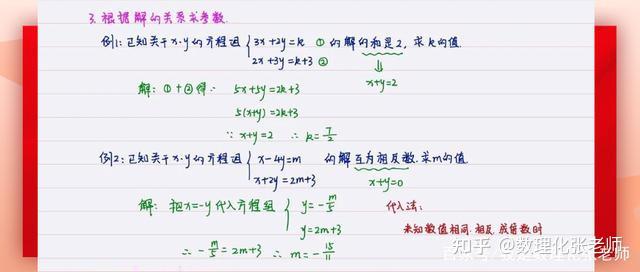 3. 根据解的关系求参数.
例1: 已知关于x.y的方程组 { 3x+2y=k ① 的解的和是2, 求k的值.
2x+3y=k+3 ②
⇓
x+y=2
解: ①+②得: 5x+5y=2k+3
5(x+y)=2k+3
∵ x+y=2 ∴ k=7/2
例2: 已知关于x.y的方程组 { x-4y=m 的解互为相反数. 求m的值.
x+2y=2m+3
x+y=0
解: 把x=-y代入方程组 { y=-m/5
y=2m+3
代入法:
未知数值相同. 相反. 成倍数时
∴ -m/5=2m+3 ∴ m=-15/11
知乎 @数理化张老师